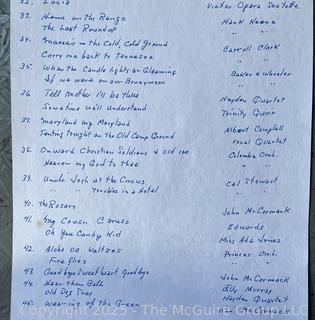 32. Lucia Victor Opera Sextette
33. Home on the Range Hank Keene
The Last Roundup " "
34. Massa's in the Cold, Cold Ground Carroll Clark
Carry me back to Tennesee " "
35. When the Candle lights are Gleaming Baker & Wheeler
If we were on our Honeymoon " "
36. Tell Mother I'll be there Hayden Quartet
Sometime we'll Understand Trinity Quoir
37. Maryland my Maryland Albert Campbell
Tenting Tonight on the Old Camp Ground Vocal Quartet
38. Onward Christian Soldiers & Old 100 Columbia Orch.
Nearer my God to thee " "
39. Uncle Josh at the Circus Cal Stewart
" " Troubles in a Hotel " "
40. The Rosary John McCormack
41. My Cousin Caruso Edwards
Oh You Candy Kid Miss Ada Jones
42. Aloha Oe Waltzes Princes Orch.
Fire Flies "
43. Goodbye Sweetheart Goodbye John McCormack
44. Hear them Bells Billy Murray
Old Dog Tray Hayden Quartet
45. Wearing of the Green
Copyright 2025 - The McGuire Group LLC